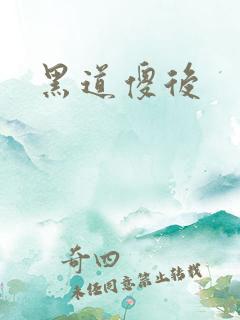 黑道傻後
奇四
未经同意禁止转载